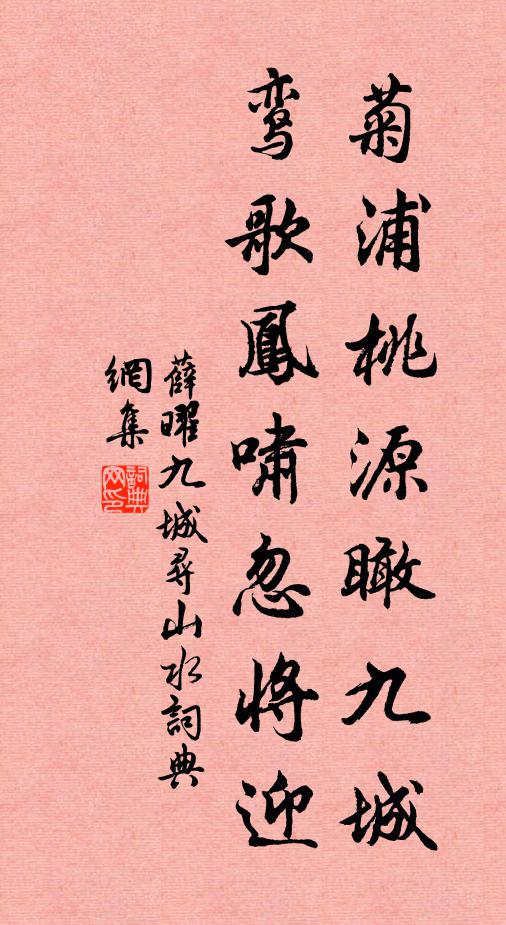 菊浦桃源瞰九城
鸾歌鳳嘯忽將迎
薛曜九城尋山水詞典
網集
詞典
网印